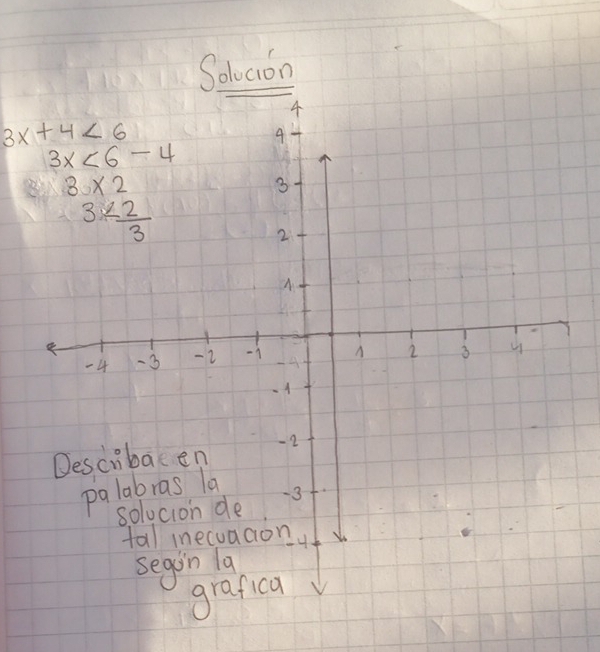 Solución
3x + 4 < 6
3x < 6 - 4
3 x 2
3 < 2
3
4
4
3
2
1
-4 -3 -2 -1 1 2 3 4
-1
-2
-3
-4
Describa en
palabras la
solución de
tal inecuación
según la
grafica